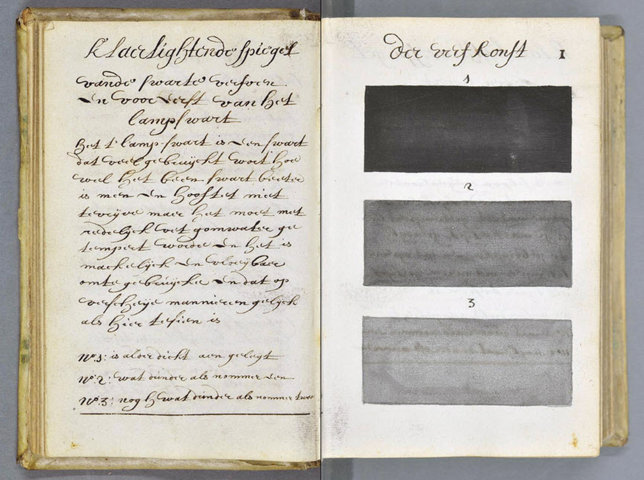 Klaerlightende spiegel
vande swarte verfven
En voor Eerst van het
lampswart
Het t' lampswart is Een swart
dat veel gebruijckt wort hoe
wel het been swart beeter
is men En hooftet niet
te vrijve maer het moet met
redelijck vet gomwater ge
tempert worde En het is
mackelijck En vloeijbaer
om te gebruijcke En dat op
verscheije mannieren gelijck
als hier te sien is
No 1: is alder dickt aen gelegt
No 2: wat dunder als nommer Een
No 3: nog H wat dunder als nommer twee
der verf konst 1
1
2
3